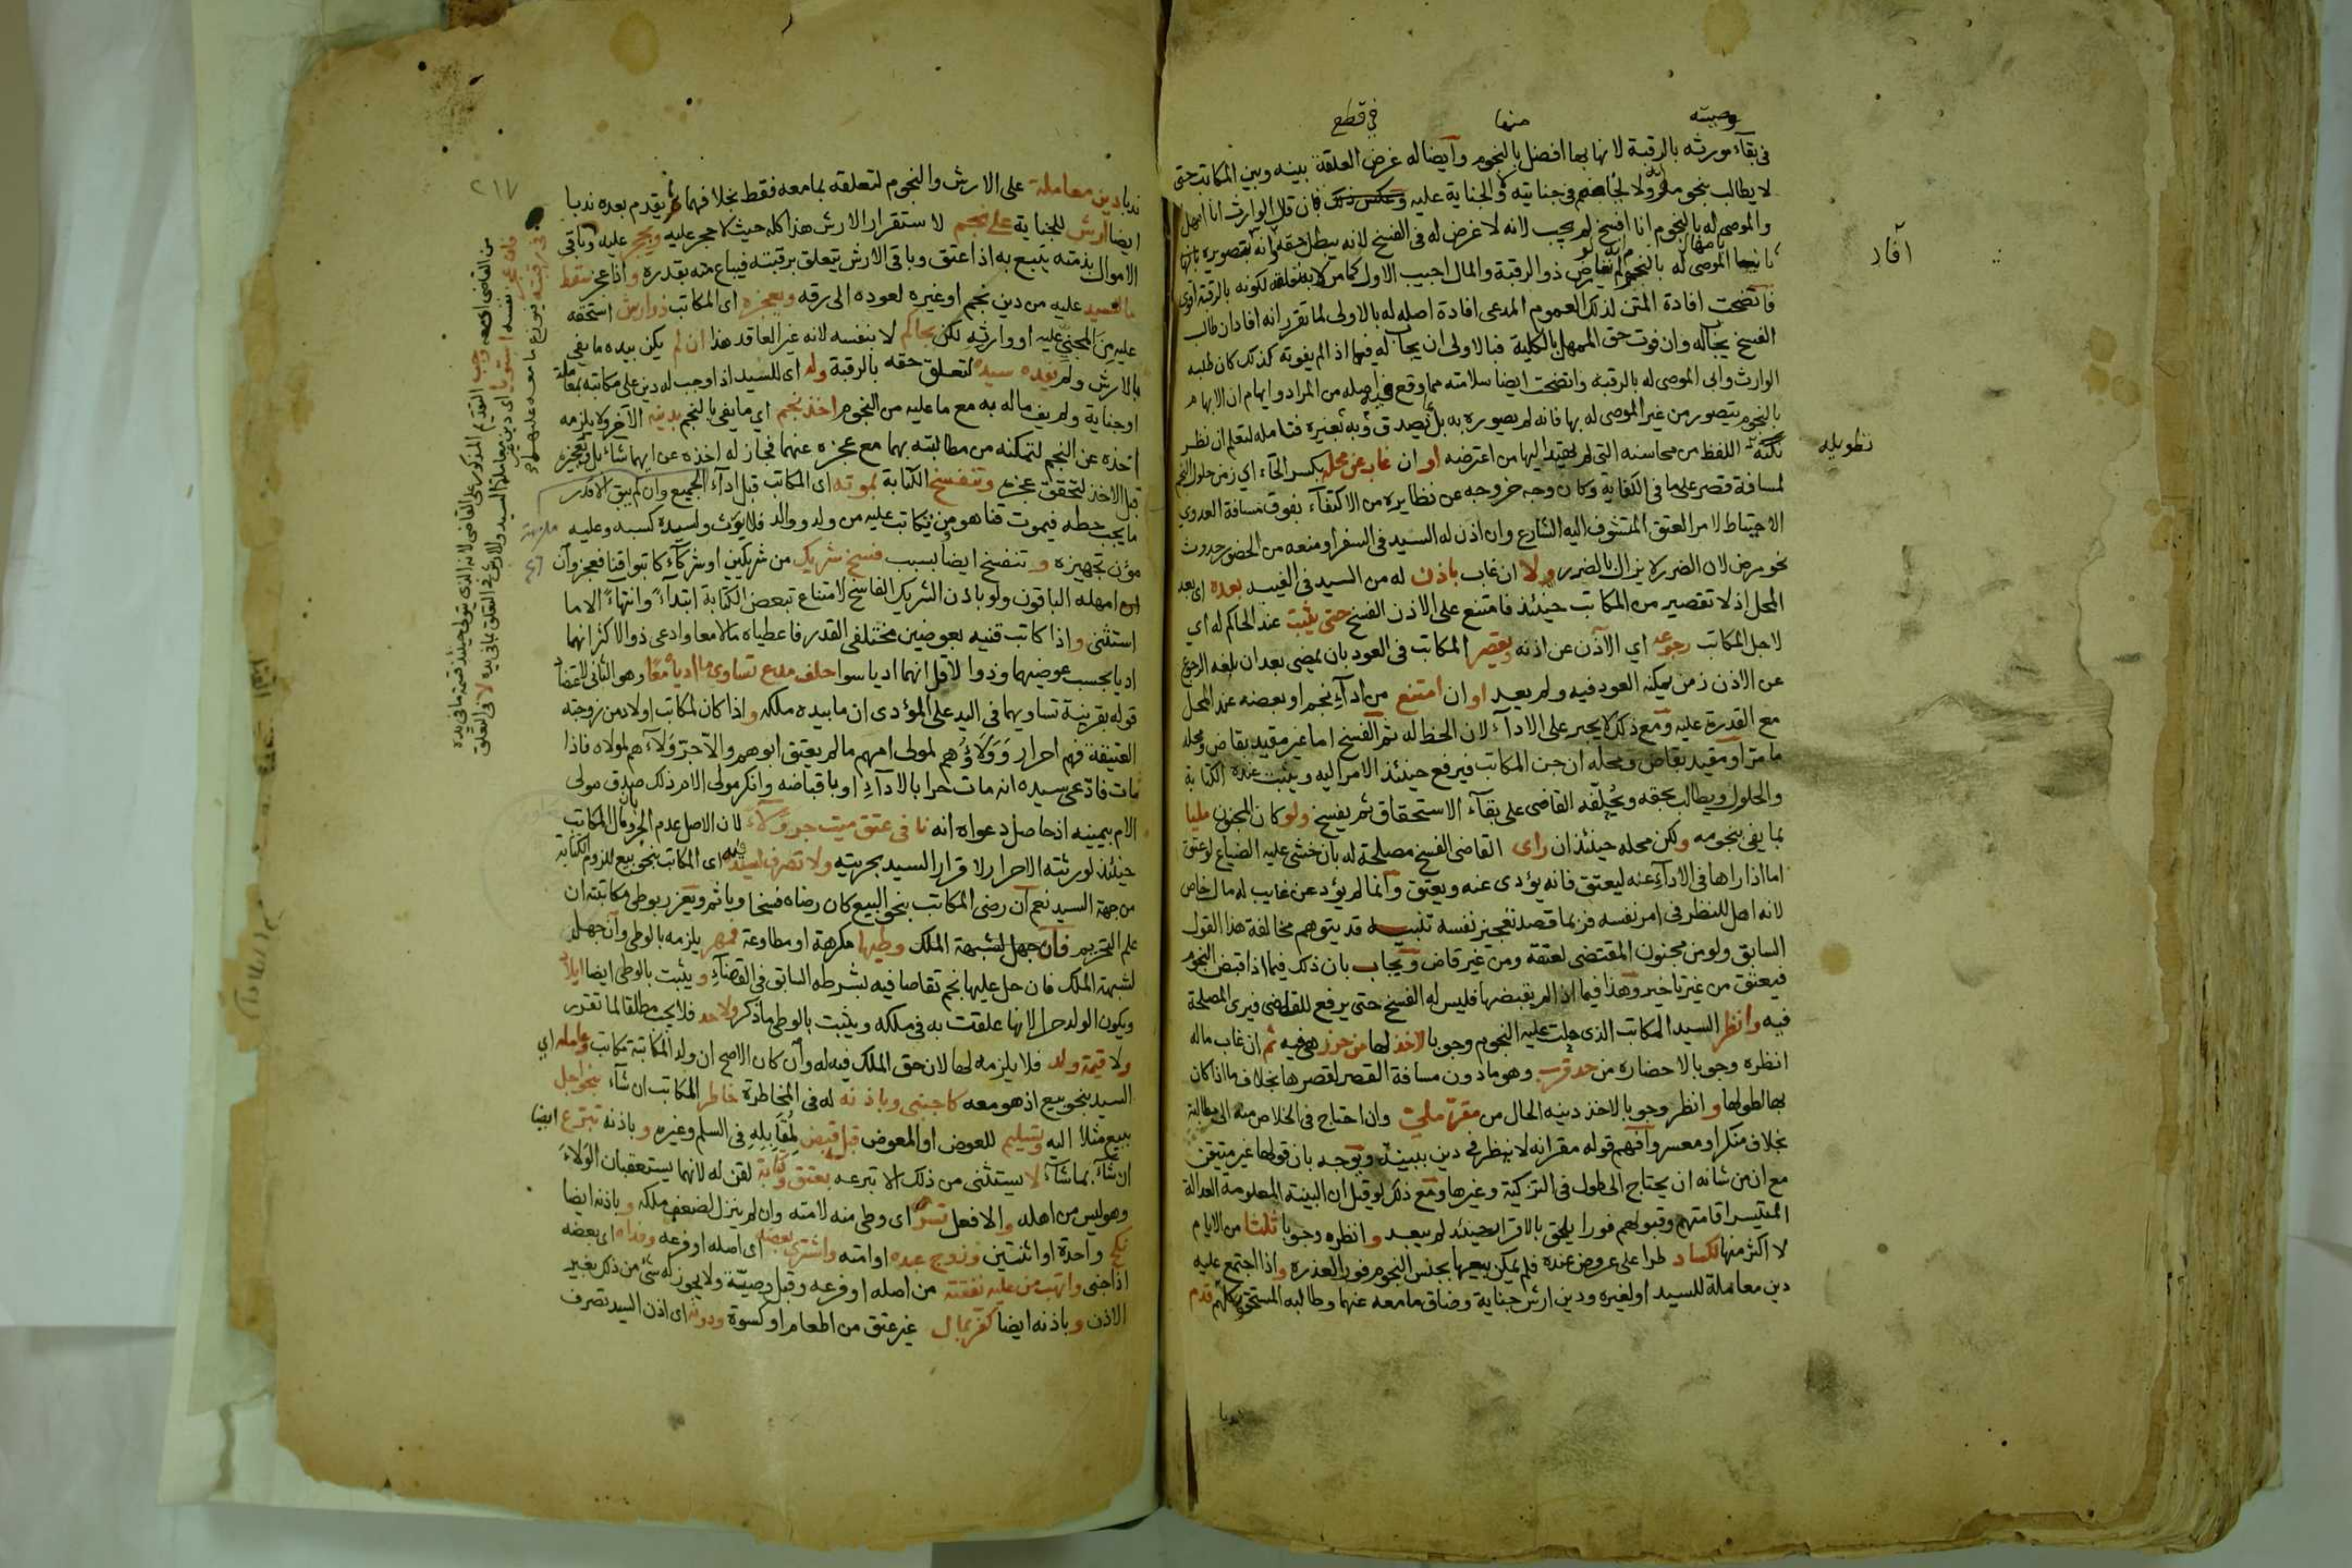 وصيته
منها
في قطع
في بقآء مورثه بالرقبة لانها بها افضل بالنجوم وايضا له غرض العلقة بينه وبين المكاتب حتى
لا يطالب بنجوم ولا في جنايته والجناية عليه وعكس ذلك فان قال الوارث انا امهل
والموصى له بالنجوم انا افسخ لم يجب لانه لا غرض له في الفسخ لانه يبطل حقه
الموصى له بالنجوم ذو الرقبة والمال اجيب الاول كما مر لكونه بالرقبة اقوى
فاتضحت افادة المتن لذلك العموم المدعى افادة اصله له بالاولى لما تقرر انه افاد ان طالب
الفسخ يجاب له وان فوت حق الممهل بالكلية فبالاولى ان يجاب له فيما اذا لم يفوته كذلك كان طلبه
الوارث وابى الموصى له بالرقبة واتضحت ايضا سلامته مما وقع في اصله من المراد وايهام ان الابهام
بالنجوم يتصور من غير الموصى له بها فانه لم يصوره به بل يصدق به وبغيره فتامله لتعلم ان نظر
نكتة اللفظ من محاسنه التي لم يهتد اليها من اعترضه او ان غاب عن محله بكسر الحآء اي زمن حلول النجم
لمسافة قصر على ما في الكفاية وكان وجه خروجه عن نظايره من الاكتفآء بفوق مسافة العدوى
الاحتياط لامر العتق المتشوف اليه الشارع وان اذن له السيد في السفر او منعه من الحضور حدوث
نحو مرض لان الضرر لا يزال بالضرر ولا ان غاب باذن له من السيد في الغيبة بعده اي بعد
المحل اذ لا تقصير من المكاتب حينئذ فامتنع على الاذن الفسخ حتى يثبت عند الحاكم له اي
لاجل المكاتب رجوعه اي الآذن عن اذنه ويقصر المكاتب في العود بان يمضي بعد ان بلغه الرجوع
عن الاذن زمن يمكنه العود فيه ولم يعد او ان امتنع من ادآء نجم او بعضه عند المحل
مع القدرة عليه ومع ذلك لا يجبر على الادآء لان الحظ له ثم الفسخ اما غير مقيد بقاض ومحله
ما مر او مقيد بقاض ومحله ان جن المكاتب فيرفع حينئذ الامر اليه ويثبت عنده الكتابة
والحلول ويطالب بحقه ويحلفه القاضي على بقآء الاستحقاق ثم يفسخ ولو كان المجنون مليا
بما يفي بنجومه ولكن محله حينئذ ان رأى القاضي الفسخ مصلحة له بان خشي عليه الضياع لو عتق
اما اذا راها في الادآء عنه ليعتق فانه يؤدي عنه ويعتق وانما لم يؤد عن غايب له مال خاص
لانه اهل للنظر في امر نفسه فربما قصد تعجيز نفسه تنبيه قد يتوهم مخالفة هذا القول
السابق ولو من مجنون المقتضي لعتقه ومن غير قاض ويجاب بان ذلك فيما اذا قبض النجوم
فيعتق من غير تاخير وهذا فيما اذا لم يقبضها فليس له الفسخ حتى يرفع للقاضي فيرى المصلحة
فيه وانظر السيد المكاتب الذي حلت عليه النجوم وجوبا لاخذ لها من حرز هي فيه ثم ان غاب ماله
انظره وجوبا لاحضاره من حد قرب وهو ما دون مسافة القصر لقصرها بخلاف ما اذا كان
بها لطولها وانظر وجوبا لاخذ دينه الحال من مقر مليء وان احتاج في الخلاص منه الى مطالبة
بخلاف منكر او معسر وافهم قوله مقر انه لا ينظر في دين ببينة ويوجه بان قولها غير متيقن
مع ان من شانه ان يحتاج الى طول في التزكية وغيرها ومع ذلك لو قيل ان البينة المعلومة العدالة
المتيسر اقامتهم وقبولهم فورا يلحق بالاقرار حينئذ لم يبعد وانظره وجوبا ثلثا من الايام
لا اكثر منها لكساد طرا على عروض عنده فلم يمكن بيعها بجنس النجوم فورا لعذره واذا اجتمع عليه
دين معاملة للسيد او لغيره ودين ارش جناية وضاق ما معه عنها وطالبه المستحق كلهم قدم
ندبا
آفاد
نظويله
٢١٧
ندبا دين معاملة على الارش والنجوم لتعلقه بما معه فقط بخلافهما ثم يقدم بعده ندبا
ايضا ارش للجناية على نجم لاستقرار الارش هذا كله حيث لا حجر عليه ويحجر عليه وباقي
الاموال بذمته يتبع به اذا عتق وباقي الارش يتعلق برقبته فيباع منه بقدره واذا عجز سقط
ما للسيد عليه من دين نجم او غيره لعوده الى رقه ويعجزه اي المكاتب ذو ارش استحقه
عليه من المجني عليه او وارثه لكن بحاكم لا بنفسه لانه غير العاقد هذا ان لم يكن بيده ما يفي
بالارش ولم يفده سيده لتعلق حقه بالرقبة وله اي للسيد اذا وجب له دين على مكاتبه بمعاملة
او جناية ولم يف ماله به مع ما عليه من النجوم اخذ نجم اي ما يفي بالنجم بدينه الآخر ولا يلزمه
اخذه عن النجم لتمكنه من مطالبته بهما مع عجزه عنهما فجاز له اخذه عن ايهما شاء بل وتعجيزه
قبل الاخذ لتحقق عجزه وتنفسخ الكتابة بموته اي المكاتب قبل ادآء الجميع وان لم يبق الا قدر
ما يجب حطه فيموت قنا هو ومن تكاتب عليه من ولد ووالد فلا يورث ولسيده كسبه وعليه
مؤن تجهيزه وتنفسخ ايضا بسبب فسخ شريك من شريكين او شركآء كاتبوا قنا فعجز وان
امهله الباقون ولو باذن الشريك الفاسخ لامتناع تبعض الكتابة ابتدآء وانتهاء الا ما
استثني واذا كاتب قنيه بعوضين مختلفي القدر فاعطياه مالا معا وادعى ذو الاكثر انهما
اديا بحسب عوضيهما وذو الاقل انهما اديا سوا حلف مدع تساوي ما اديا معا وهو الثاني لاعتضا
قوله بقرينة تساويهما في اليد على المؤدى ان ما بيده ملكه واذا كان لمكاتب اولاد من زوجته
العتيقة فهم احرار وولاؤهم لمولى امهم ما لم يعتق ابوهم والا جر ولآءهم لمولاه فاذا
مات فادعى سيده انه مات حرا بالادآء او باقباضه وانكر مولى الام ذلك صدق مولى
الام بيمينه اذ حاصل دعواه انه نافي عتق ميت جر ولآء لان الاصل عدم الجر ومال المكاتب
حينئذ لورثته الاحرار لاقرار السيد بحريته ولا تصرف لسيد فيه اى المكاتب بنحو بيع للزوم الكتابة
من جهة السيد نعم ان رضي المكاتب بنحو البيع كان رضاه فسخا وياثم ويعزر بوطي مكاتبته ان
علم التحريم فان جهل لشبهة الملك وطيها مكرهة او مطاوعة فمهر يلزمه بالوطي وان جهل
لشبهة الملك فان حل عليها نجم تقاصا فيه لشرطه السابق في القضآء ويثبت بالوطي ايضا ايلاد
ويكون الولد حرا لانها علقت به في ملكه ويثبت بالوطي ما ذكر ولا حد فلا يجب مطلقا لما تقرر
ولا قيمة ولد فلا يلزمه لها لان حق الملك فيه له وان كان الاصح ان ولد المكاتبة مكاتب وعامله اي
السيد بنحو بيع اذ هو معه كاجنبي وباذنه له في المخاطرة خاطر المكاتب ان شآء بنحو اجل
بيع مثلا اليه وتسليم للعوض او المعوض قبل قبض لمقابله في السلم وغيره وباذنه تبرع ايضا
ان شآء بما شآء لا يستثنى من ذلك الا تبرعه بعتق وكتابة لقن له لانهما يستعقبان الولاء
وهو ليس من اهله والا فعل تسر اى وطي منه لامته وان لم ينزل لضعف ملكه وباذنه ايضا
نكح واحدة او اثنتين وزوج عبده او امته واشترى بعضه اى اصله او فرعه وفداه اى بعضه
اذا جنى واتهب من عليه نفقته من اصله او فرعه وقبل وصية ولا يجوز له شئ من ذلك بغير
الاذن وباذنه ايضا كفر بمال غير عتق من اطعام او كسوة ودونه اى اذن السيد تصرف